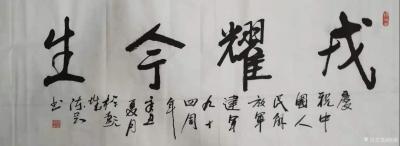 戎耀今生
慶
祝中
國人
民解
放軍
建軍
九十
四周
年
辛丑
夏月
於
陈
书